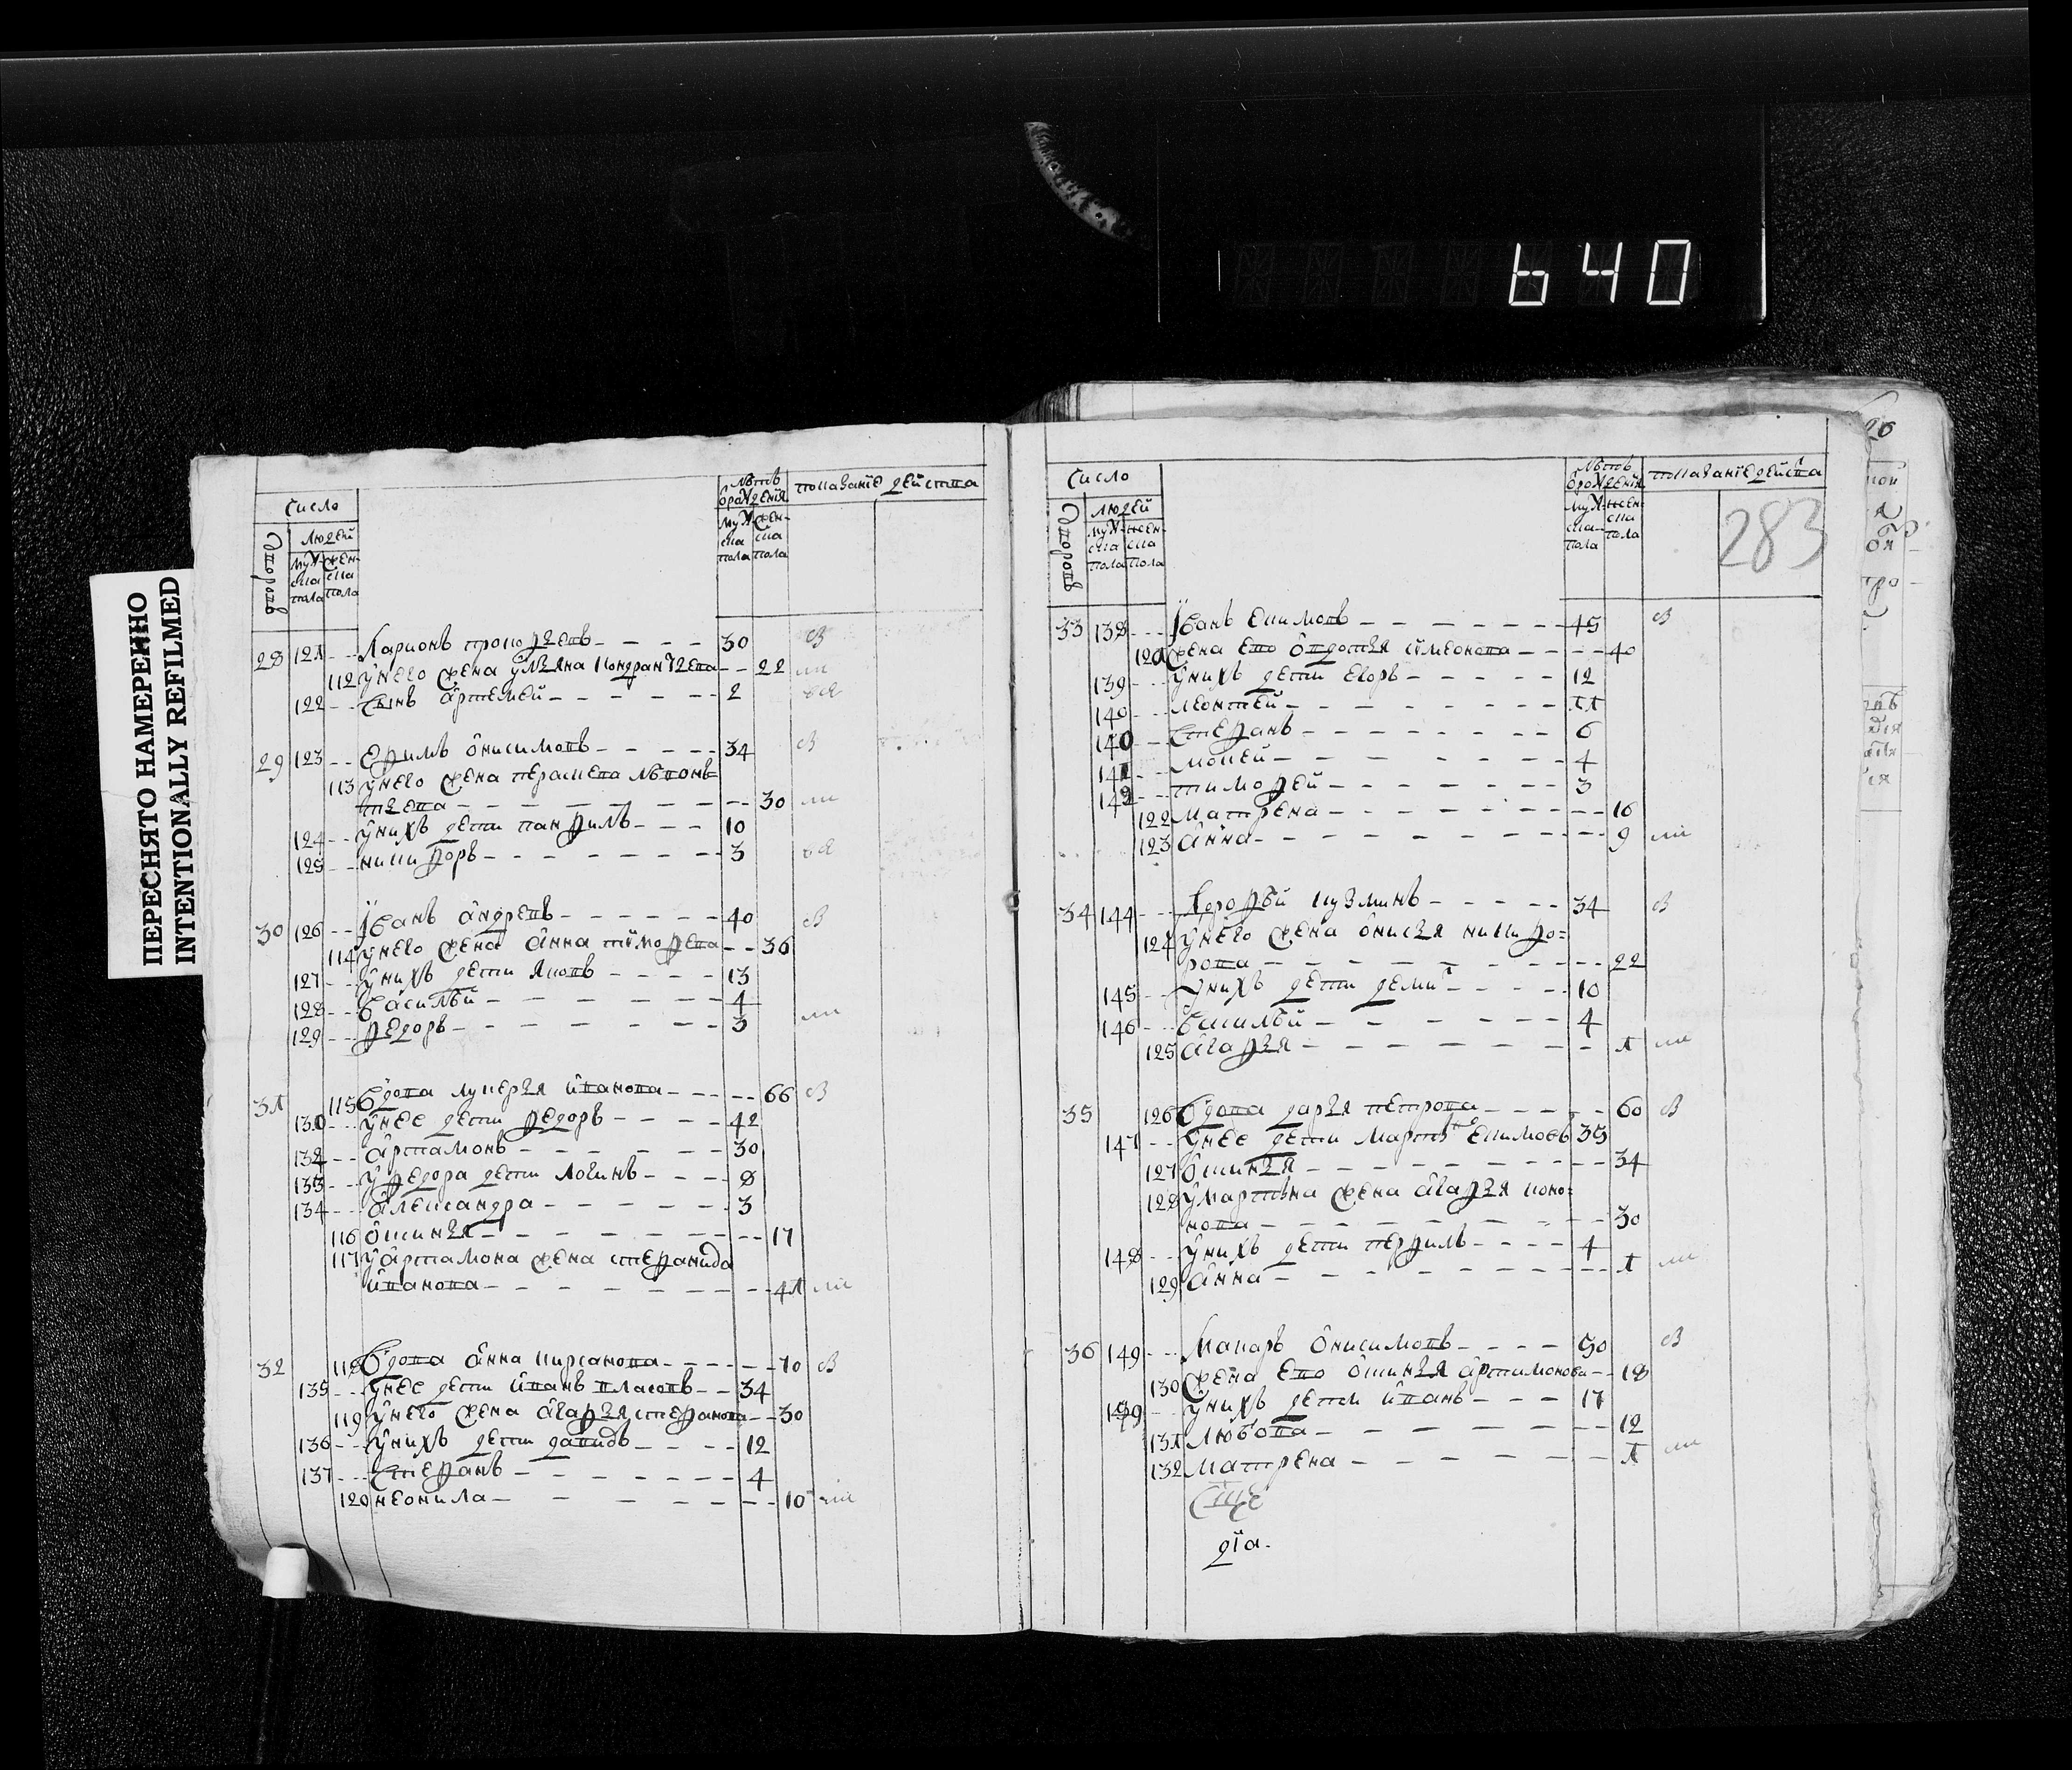 640
ПЕРЕСНЯТО НАМЕРЕННО
INTENTIONALLY REFILMED
Число
Дворовъ
людей
мужска пола
женска пола
Лѣтъ ѿ рожденія
мужска пола
женска пола
показаніе действа
28 121 Ларионъ прокофьевъ 30
112 у него жена ульяна кондратьева 22
122 Сынъ артемей 2
29 123 Ефимъ онисимовъ 34
113 у него жена
тьева 30
124 у нихъ дети панфилъ 10
125 никифоръ 3
30 126 Іванъ андревъ 40
114 у него жена анна тимофева 36
127 у нихъ дети яковъ 13
128 василѣй 4
129 федоръ 3
31 115 Вдова лукерья иванова 66
130 у нее дети федоръ 42
132 артамонъ 30
133 у федора дети логинъ 8
134 александра 3
116 осинья 17
117 у артамона жена степанида
иванова 41
32 118 Вдова анна кирсанова 70
135 у нее дети иванъ власовъ 34
119 у него жена агафья степанова 30
136 у нихъ дети давидъ 12
137 Степанъ 4
120 неонила 10
Число
Дворовъ
людей
мужска пола
женска пола
Лѣтъ ѿ рожденія
мужска пола
женска пола
показаніе действа
283
33 138 Іванъ екимовъ 45
121 жена ево овдотья симеонова 40
139 у нихъ дети егоръ 12
140 леонтей 11
140 Степанъ 6
141 мокей 4
142 тимофей 3
122 матрена 16
123 анна 9
34 144 Ерофѣй кузминъ 34
124 у него жена онисья никифо=
рова 22
145 у нихъ дети деми 10
146 василѣй 4
125 агафья 1
35 126 Вдова дарья петрова 60
147 у нее дети мартинъ екимовъ 35
127 осинья 34
128 у мартына жена агафья коно=
нова 30
148 у нихъ дети перфилъ 4
129 анна 1
36 149 Макаръ онисимовъ 50
130 жена ево осинья артамонова 18
у нихъ дети иванъ 17
131 любова 12
132 матрена 1
дїа.